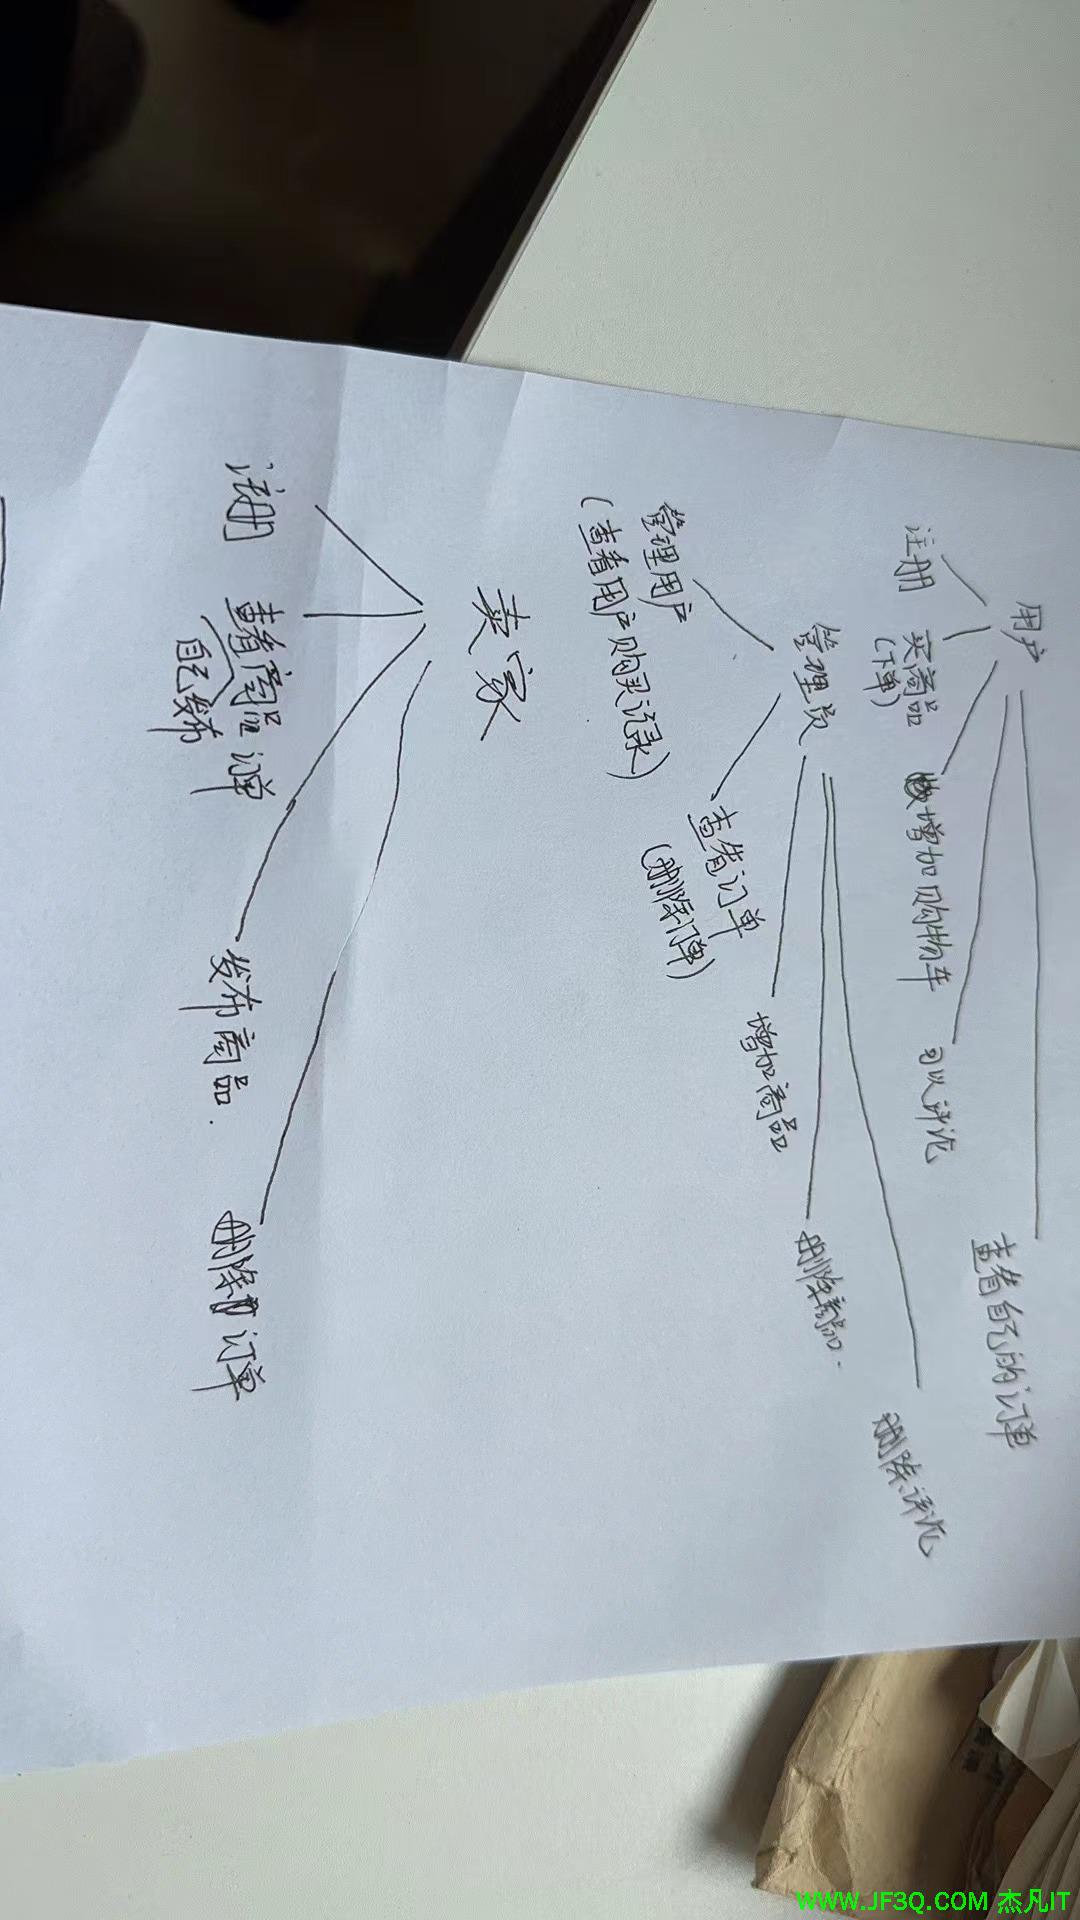 用户
注册
买商品
(下单)
增加购物车
可以评论
查看自己的订单
管理员
管理用户
(查看用户购买记录)
查看订单
(删除订单)
增加商品
删除商品.
删除评论
卖家
注册
查看商品订单
自己发布
发布商品.
删除订单
WWW.JF3Q.COM 杰凡IT